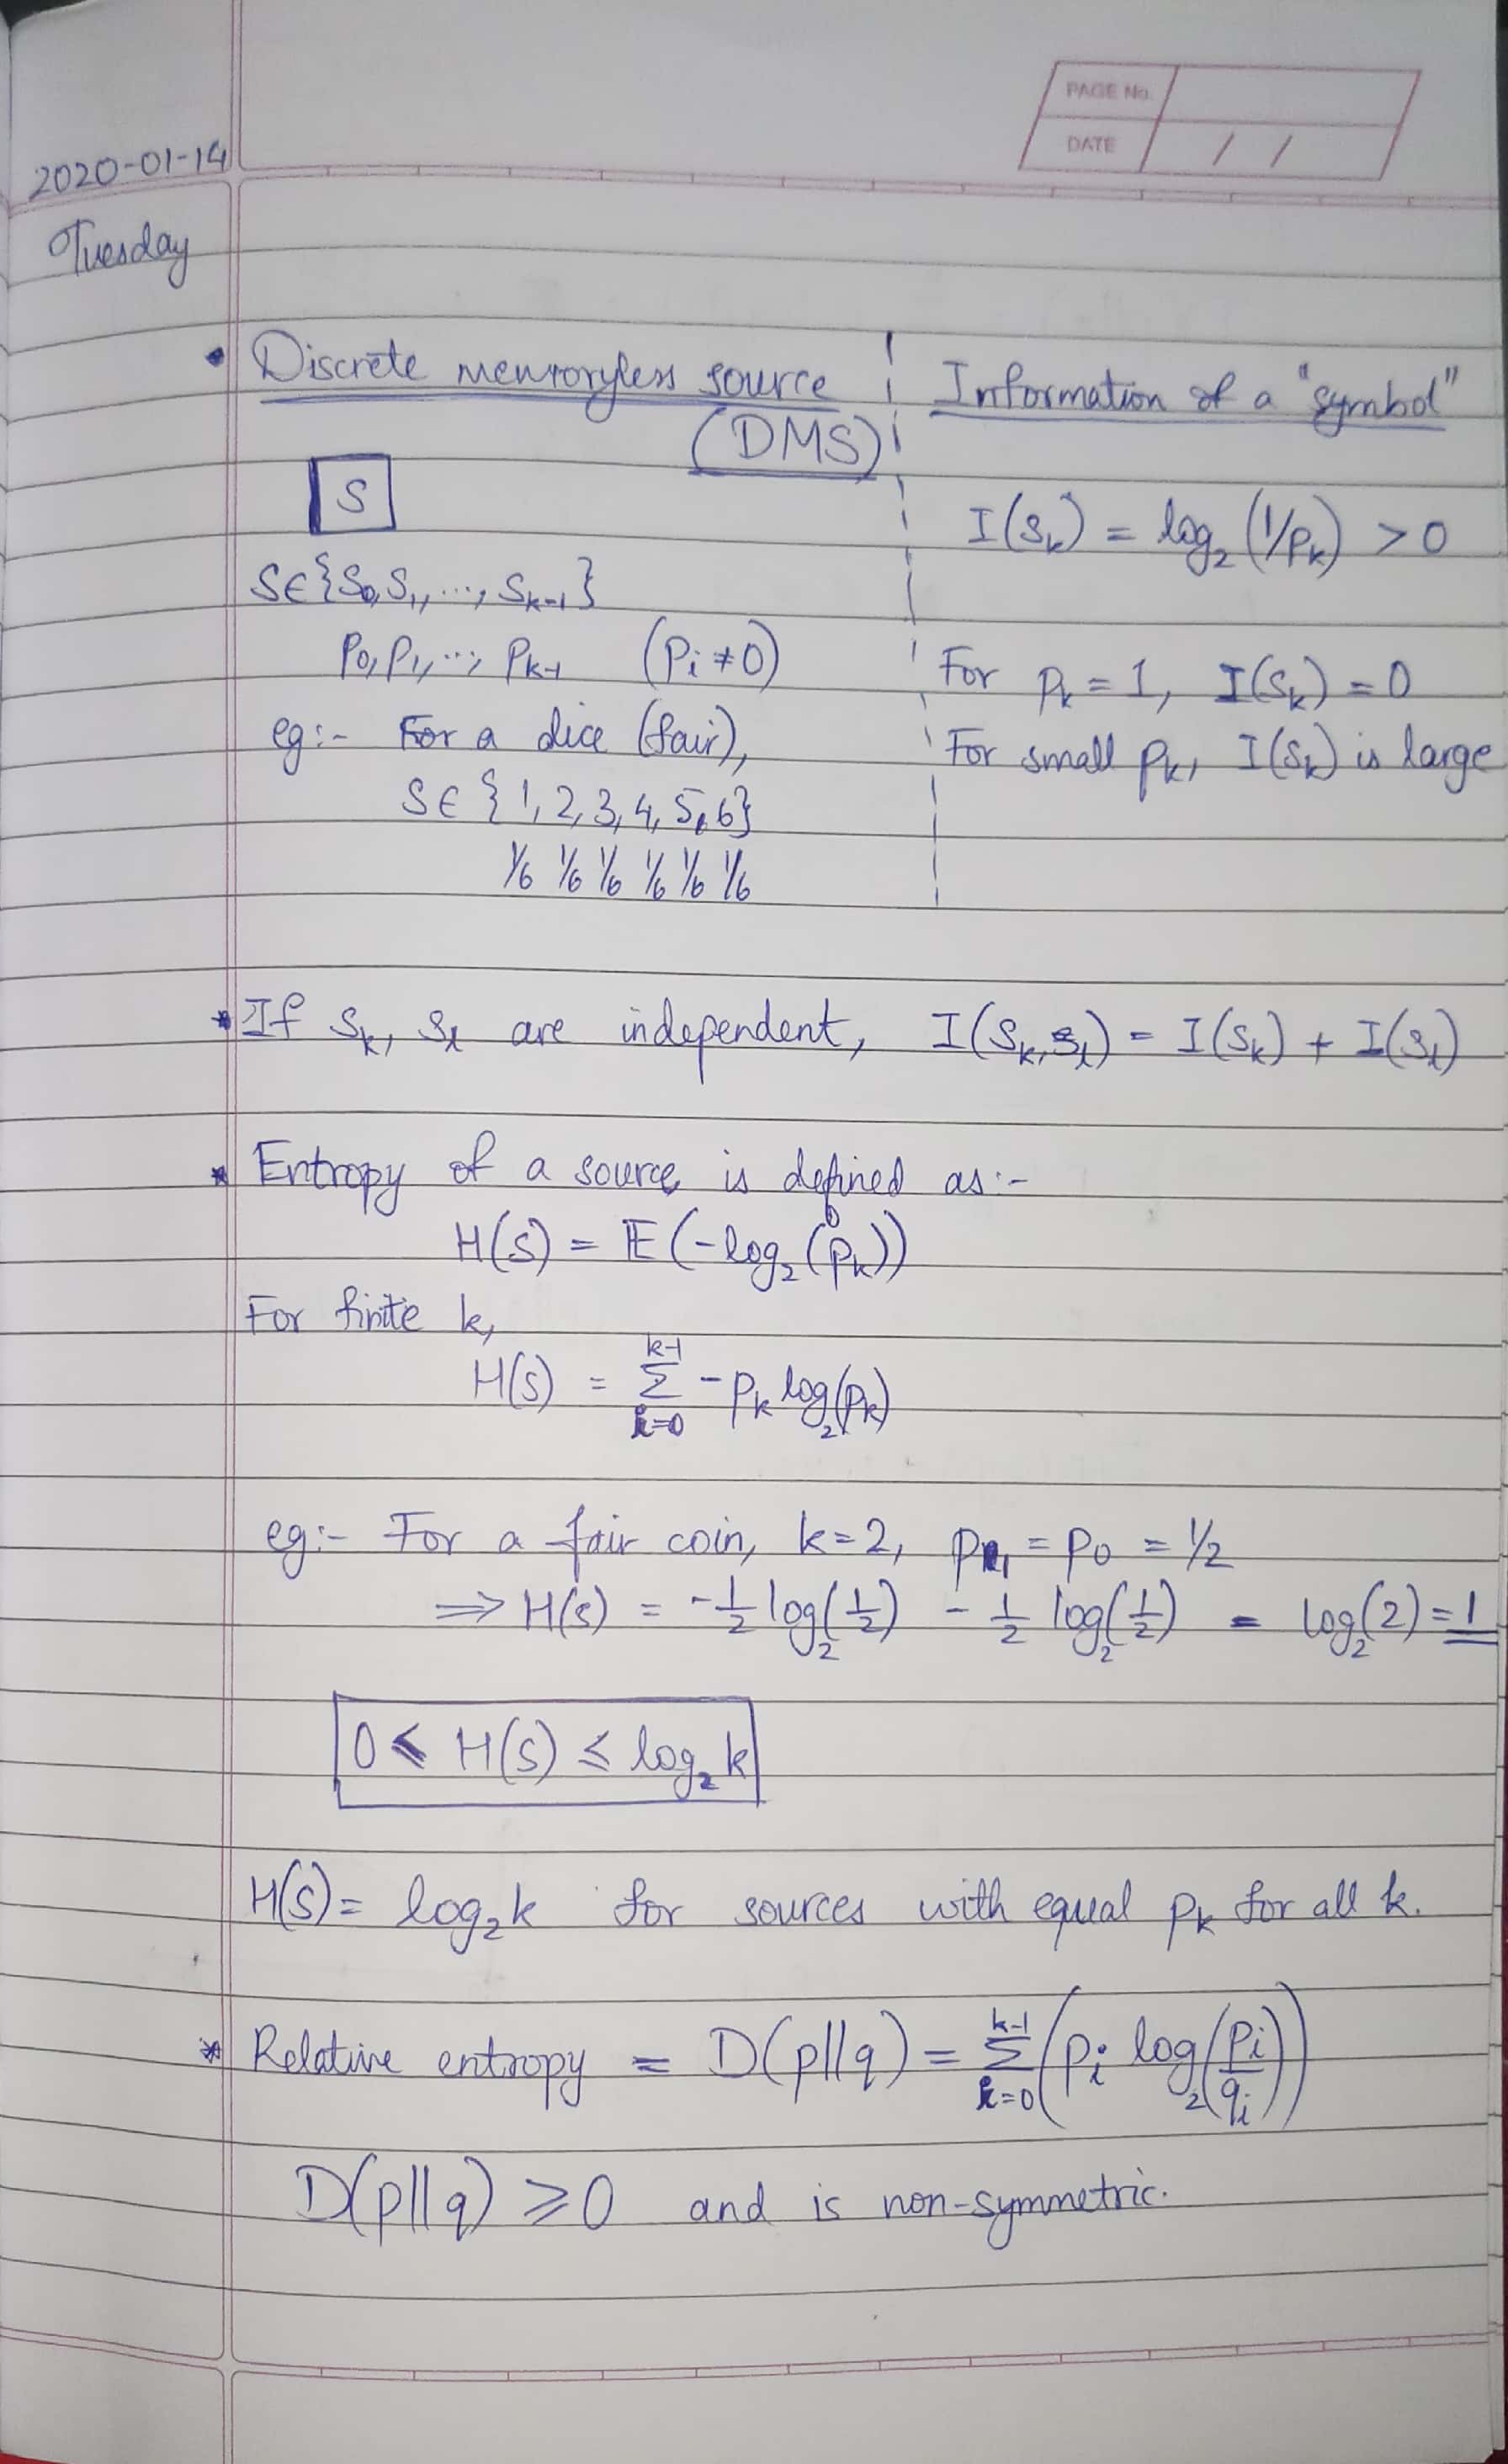 PAGE No.
DATE / /
2020-01-14
Tuesday
• Discrete memoryless source
(DMS)
S
S∈{S₀,S₁,...,Sₖ₋₁}
p₀,p₁,...,pₖ₋₁ (pᵢ≠0)
eg:- For a dice (fair),
S∈{1,2,3,4,5,6}
1/6 1/6 1/6 1/6 1/6 1/6
Information of a "symbol"
I(Sₖ) = log₂(1/pₖ) >0
For pₖ=1, I(Sₖ)=0
For small pₖ, I(Sₖ) is large
* If Sₖ, Sₗ are independent, I(Sₖ,Sₗ) = I(Sₖ) + I(Sₗ)
* Entropy of a source is defined as:-
H(S) = E(-log₂(pₖ))
For finite k,
H(S) = Σ_{k=0}^{k-1} -pₖ log₂(pₖ)
eg:- For a fair coin, k=2, p₁ = p₀ = 1/2
⇒ H(S) = -1/2 log₂(1/2) - 1/2 log₂(1/2) = log₂(2)=1
0 ≤ H(S) ≤ log₂k
H(S)= log₂k for sources with equal pₖ for all k.
* Relative entropy = D(p||q) = Σ_{i=0}^{k-1} (pᵢ log₂(pᵢ/qᵢ))
D(p||q) ⩾0 and is non-symmetric.